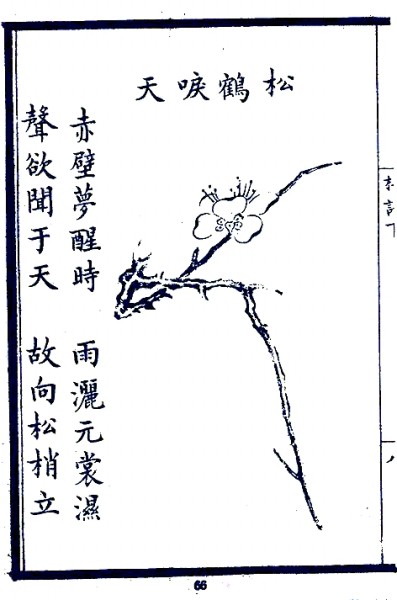 松鶴唳天
赤壁夢醒時　雨灑元裳濕
聲欲聞于天　故向松梢立
66